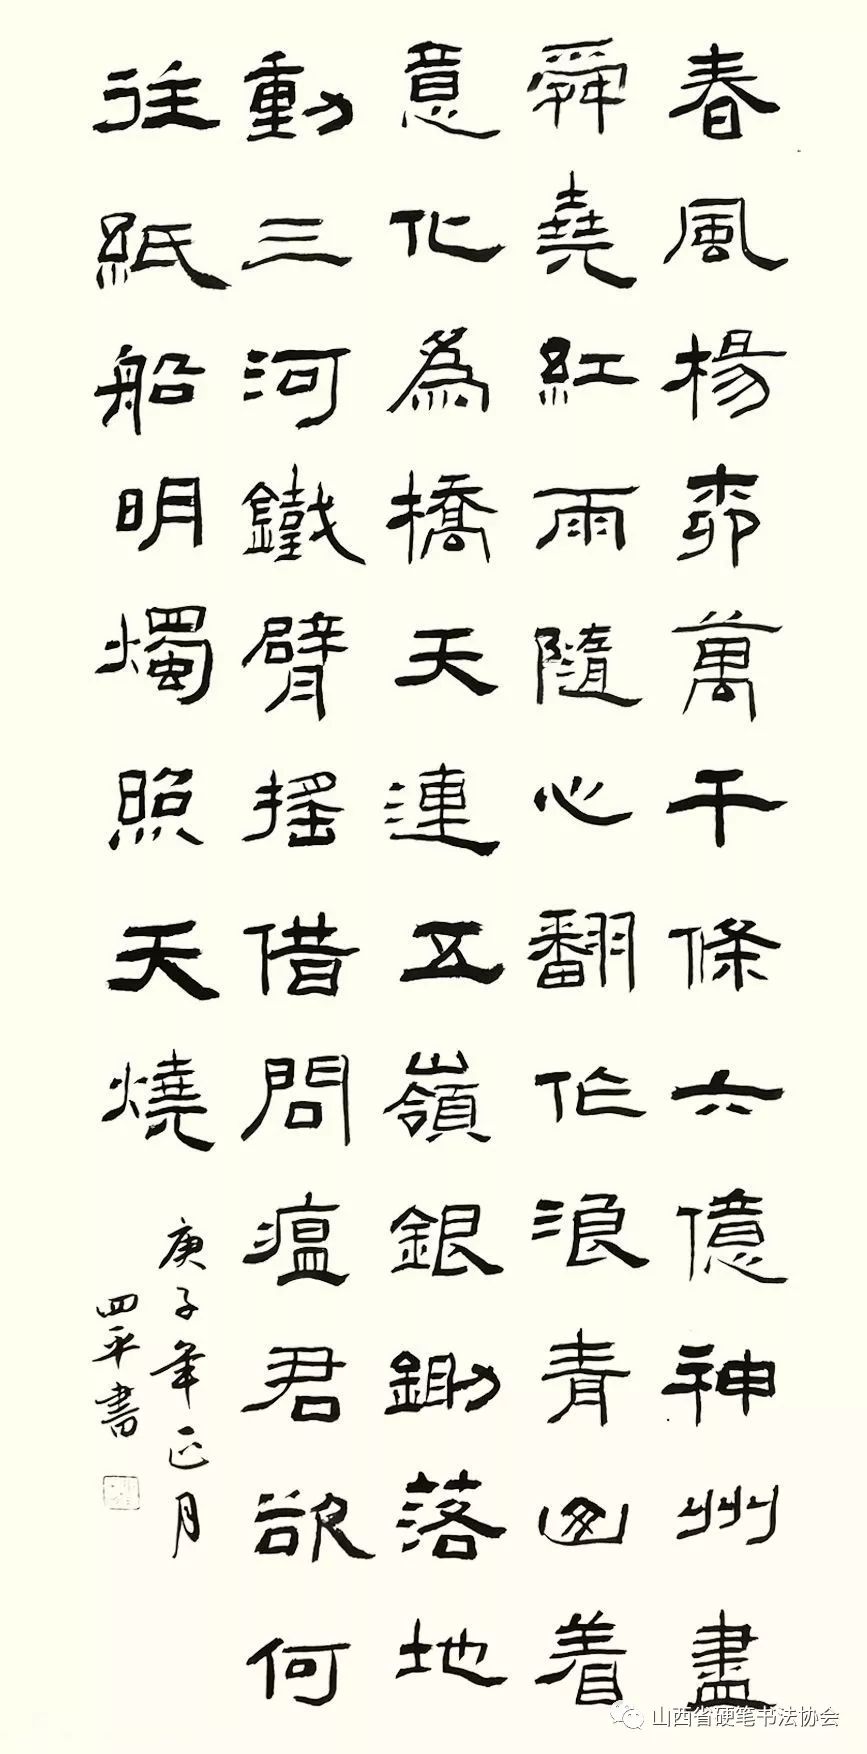 春風楊柳萬千條六億神州盡
舜堯紅雨隨心翻作浪青山着
意化為橋天連五嶺銀鋤落地
動三河鐵臂搖借問瘟君欲何
往紙船明燭照天燒
庚子年正月
四平書
山西省硬笔书法协会